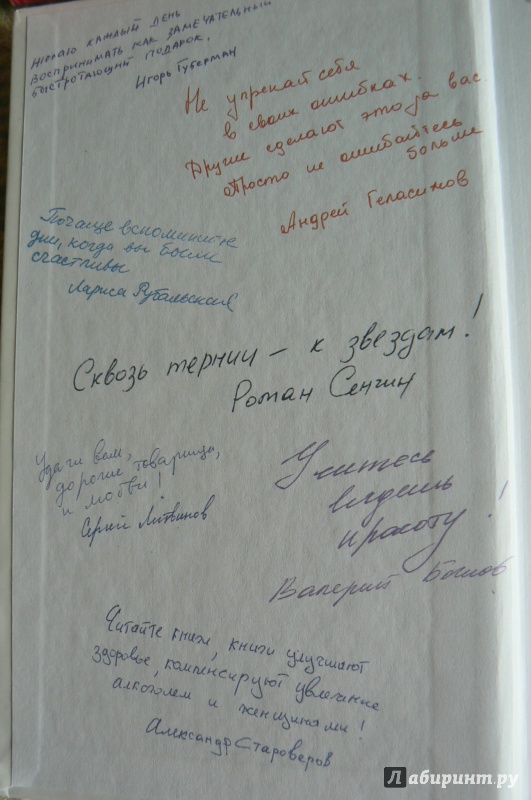 Желаю каждый день
воспринимать как замечательный
быстротающий подарок.
Игорь Губерман
Не упрекай себя
в своих ошибках.
Другие сделают это за вас.
Просто не ошибайтесь
больше
Андрей Геласимов
Почаще вспоминайте
дни, когда вы были
счастливы
Лариса Рубальская
Сквозь тернии – к звездам!
Роман Сенчин
Удачи вам,
дорогие товарищи,
и любви!
Сергей Литвинов
Учитесь
видеть
красоту!
Валерий
Читайте книги, книги улучшают
здоровье, компенсируют увлечение
алкоголем и женщинами!
Александр Староверов
Лабиринт.ру